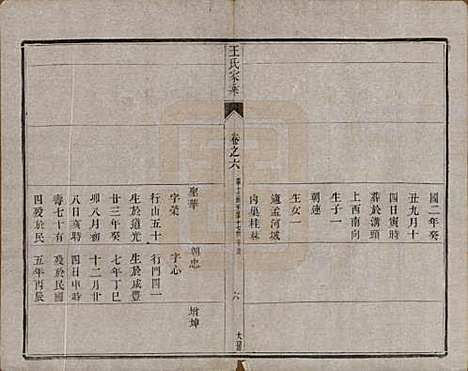 國二年癸
丑九月十
四日寅時
葬於溝頭
上西南向
生子一
朝連
生女一
適孟河城
內巢桂林
王氏家乘
卷之六
六
大槐
聖華
字榮
行山五十
生於道光
廿三年癸
卯八月初
八日亥時
壽七十有
四歿於民
朝忠
字心
行門四一
生於咸豐
七年丁巳
十二月廿
四日申時
歿於民國
五年丙辰
增坤